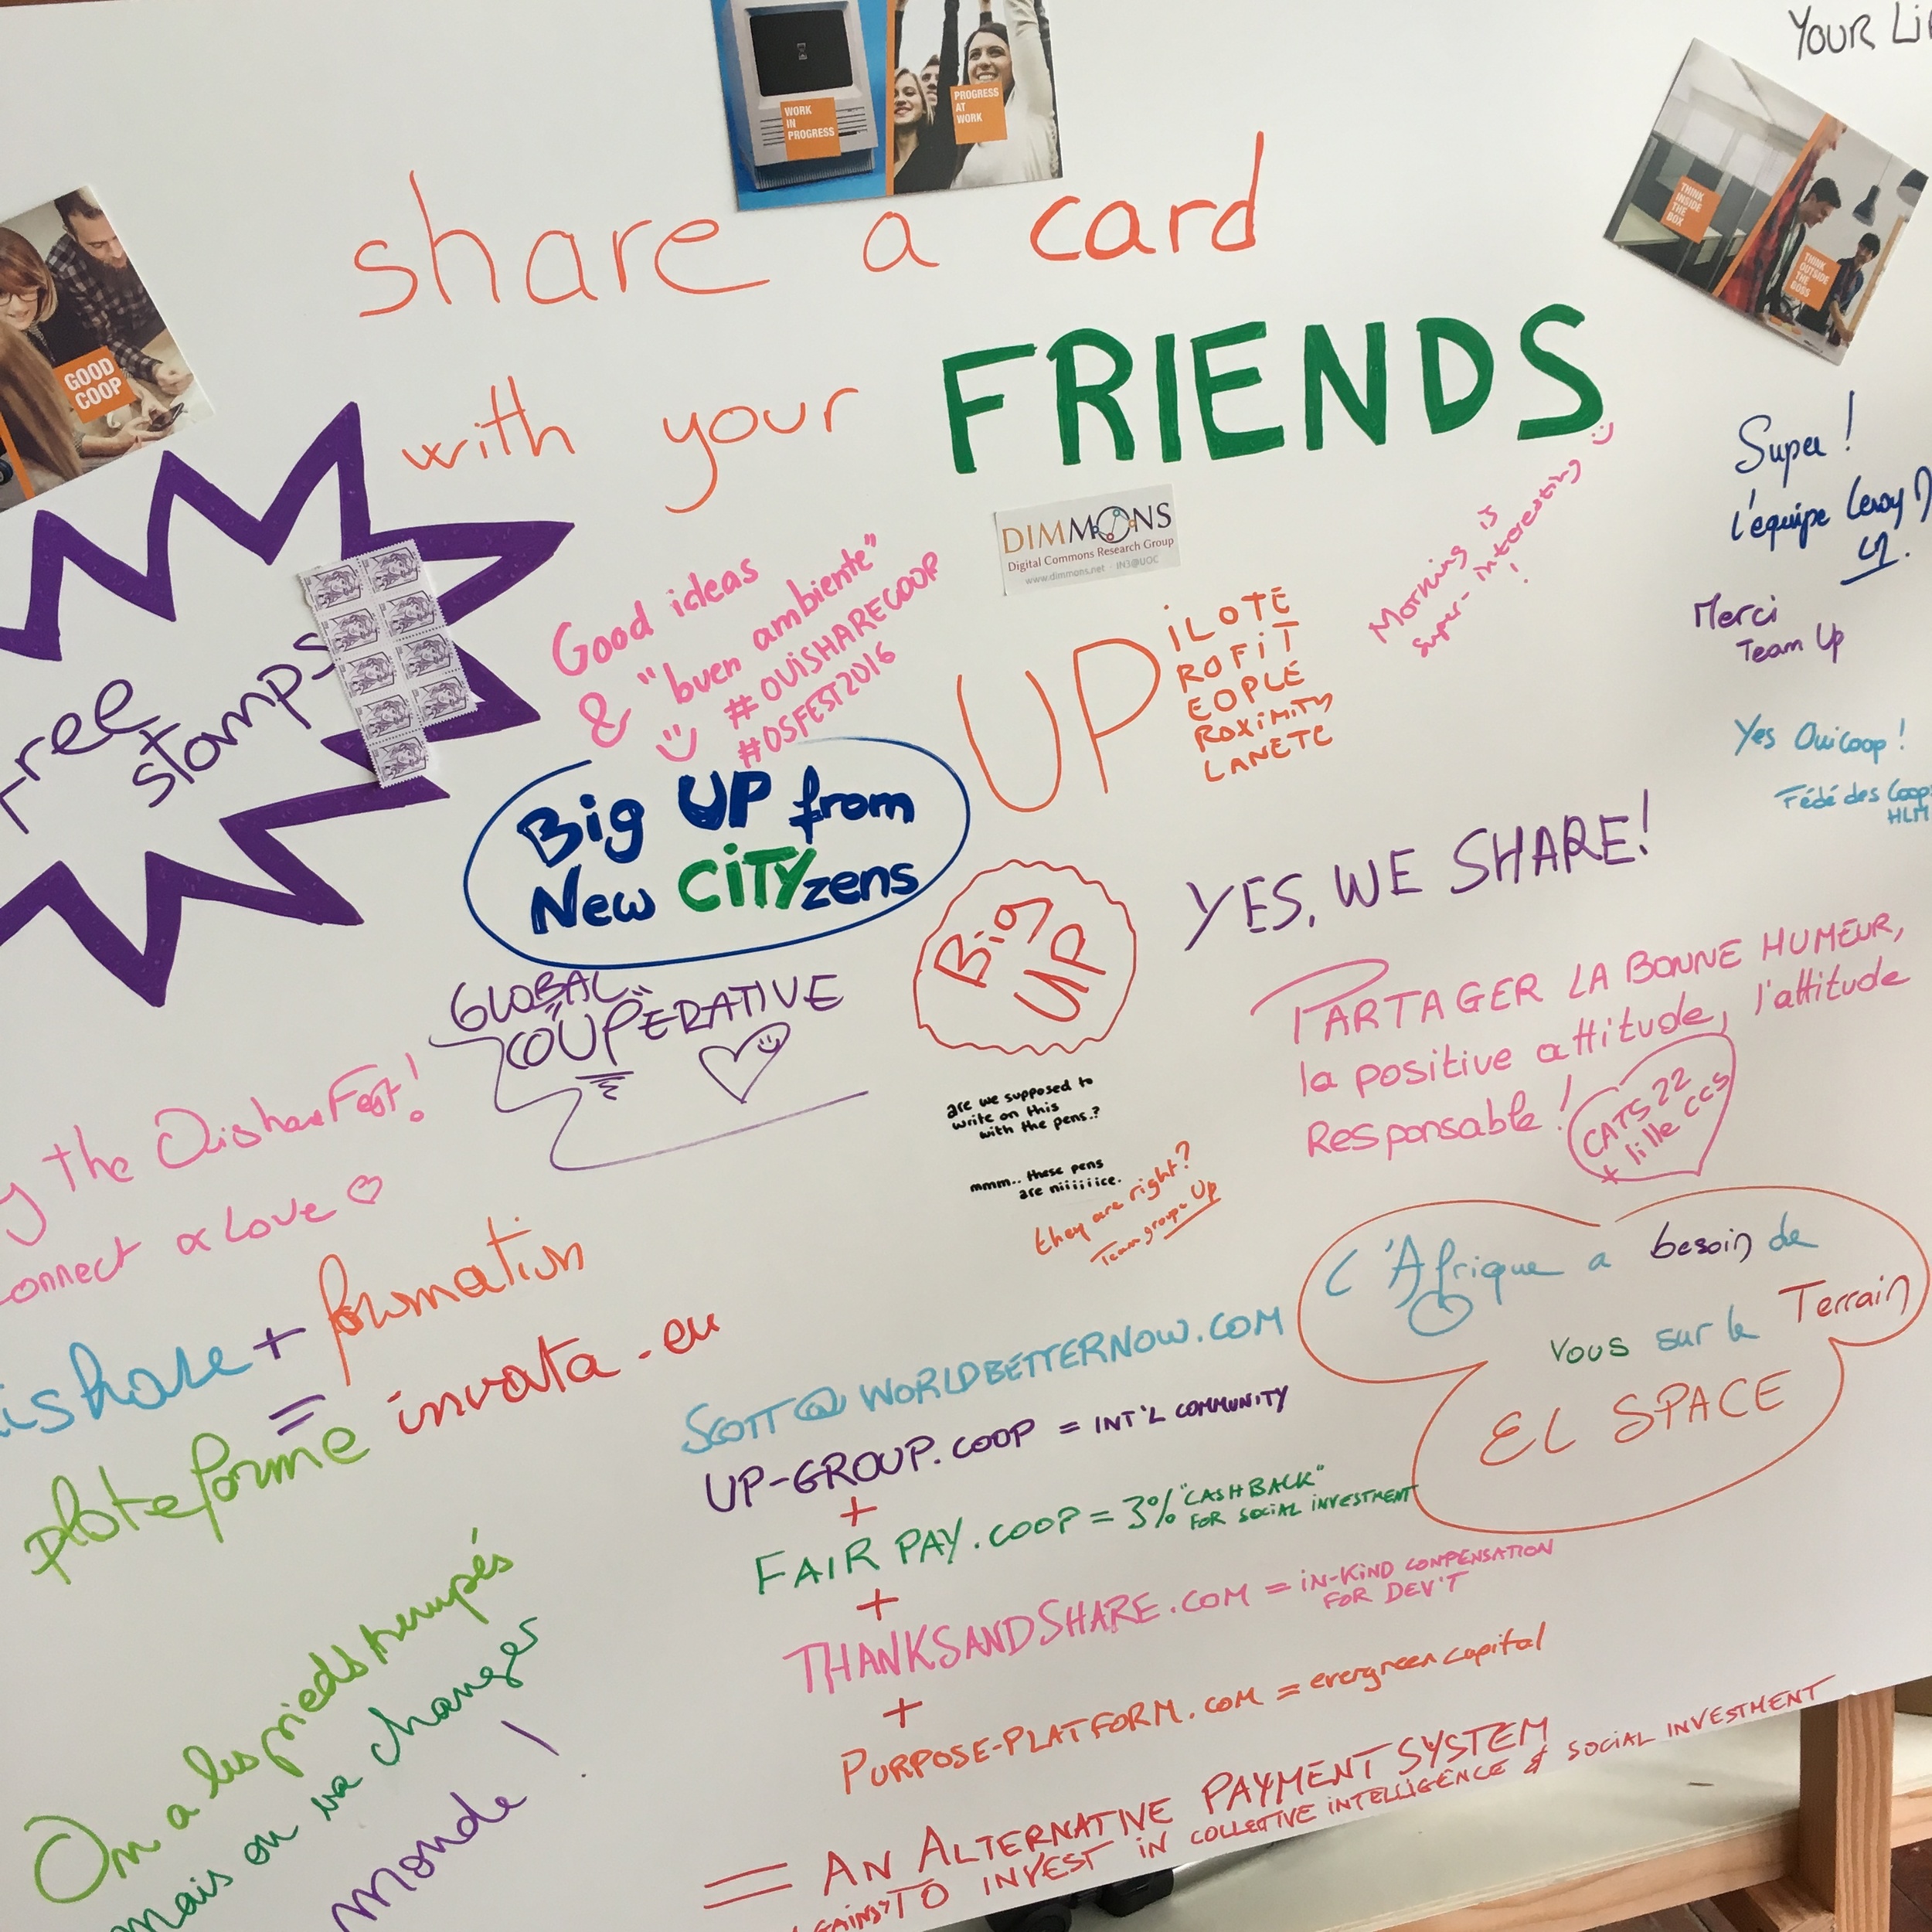 YOUR
WORK
IN
PROGRESS
PROGRESS
AT
WORK
THINK
INSIDE
THE
BOX
THINK
OUTSIDE
THE
BOSS
GOOD
COOP
share a card
with your FRIENDS
Free
stamps
DIMMONS
Digital Commons Research Group
www.dimmons.net - IN3@UOC
Good ideas
& "buen ambiente"
# OUISHARECOOP
#OSFEST2016
Morning is
super-interesting
!
Super !
l'équipe
Merci
Team Up
Yes Ouicoop !
Fédé des Coop
HLM
UP
iLOTE
ROFiT
EOPLE
ROXiMiTY
LANETE
Big UP from
New CiTYzens
Big
UP
YES, WE SHARE!
GLOBAL
COUPERATIVE
PARTAGER LA BONNE HUMEUR,
la positive attitude, l'attitude
Responsable !
CATS 22
lille CCS
the OuishareFest!
onnect & Love
are we supposed to
write on this
with the pens.?
mmm.. these pens
are niiiiiice.
they are right?
Team groupe Up
ishare + formation
=
plateforme invata.eu
L'Afrique a besoin de
vous sur le Terrain
EL SPACE
SCOTT@WORLDBETTERNOW.COM
UP-GROUP.COOP = INT'L COMMUNITY
+
FAIR PAY.COOP = 3% "CASHBACK"
FOR SOCIAL INVESTMENT
+
THANKSANDSHARE.COM = IN-KIND COMPENSATION
FOR DEV'T
+
PURPOSE-PLATFORM.COM = evergreen capital
= AN ALTERNATIVE PAYMENT SYSTEM
TO INVEST IN COLLECTIVE INTELLIGENCE & SOCIAL INVESTMENT
On a les pieds trempés
mais on va changer
monde !